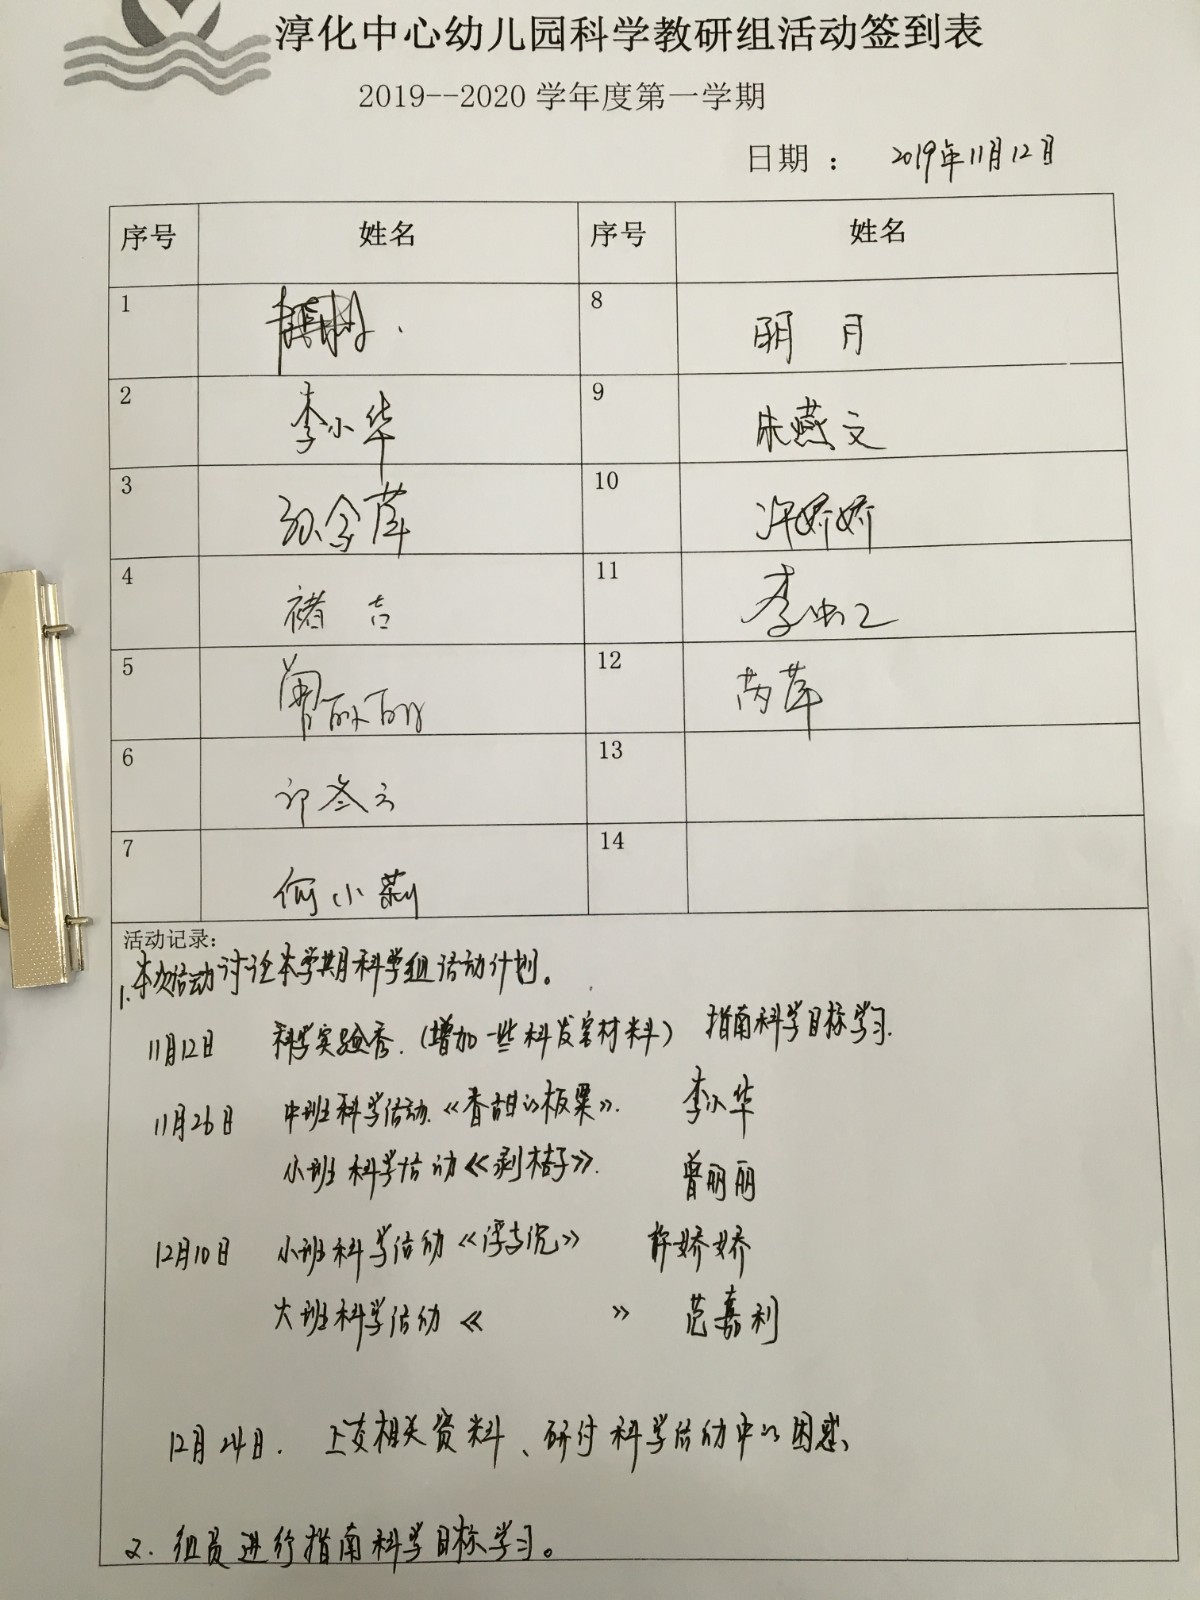 淳化中心幼儿园科学教研组活动签到表
2019--2020 学年度第一学期
日期 ： 2019年11月12日
序号 姓名 序号 姓名
1 8 明月
2 李小华 9 朱燕文
3 孙金萍 10 许娇娇
4 褚吉 11
5 曾丽丽 12 芮萍
6 邝冬云 13
7 何小莉 14
活动记录：
1. 本次活动讨论本学期科学组活动计划。
11月12日 科学实验秀.（增加一些科发室材料） 指南科学目标学习.
11月26日 中班科学活动.《香甜的板栗》. 李小华
小班科学活动《剥桔子》. 曾丽丽
12月10日 小班科学活动《浮与沉》 许娇娇
大班科学活动《 》 范嘉利
12月24日. 上交相关资料、研讨科学活动中的困惑、
2. 组员进行指南科学目标学习。